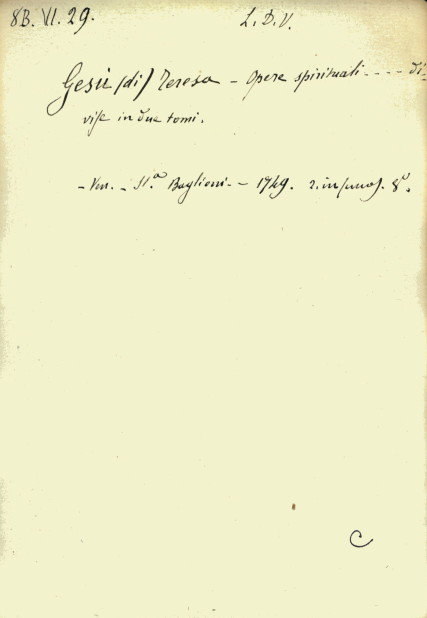 8B. VI. 29. L. D. V.
Gesù (di) Teresa - Opere spirituali - - - - di-
vise in due tomi.
- Ven. - St.a Baglioni - - 1749. 2. in 8°.
C